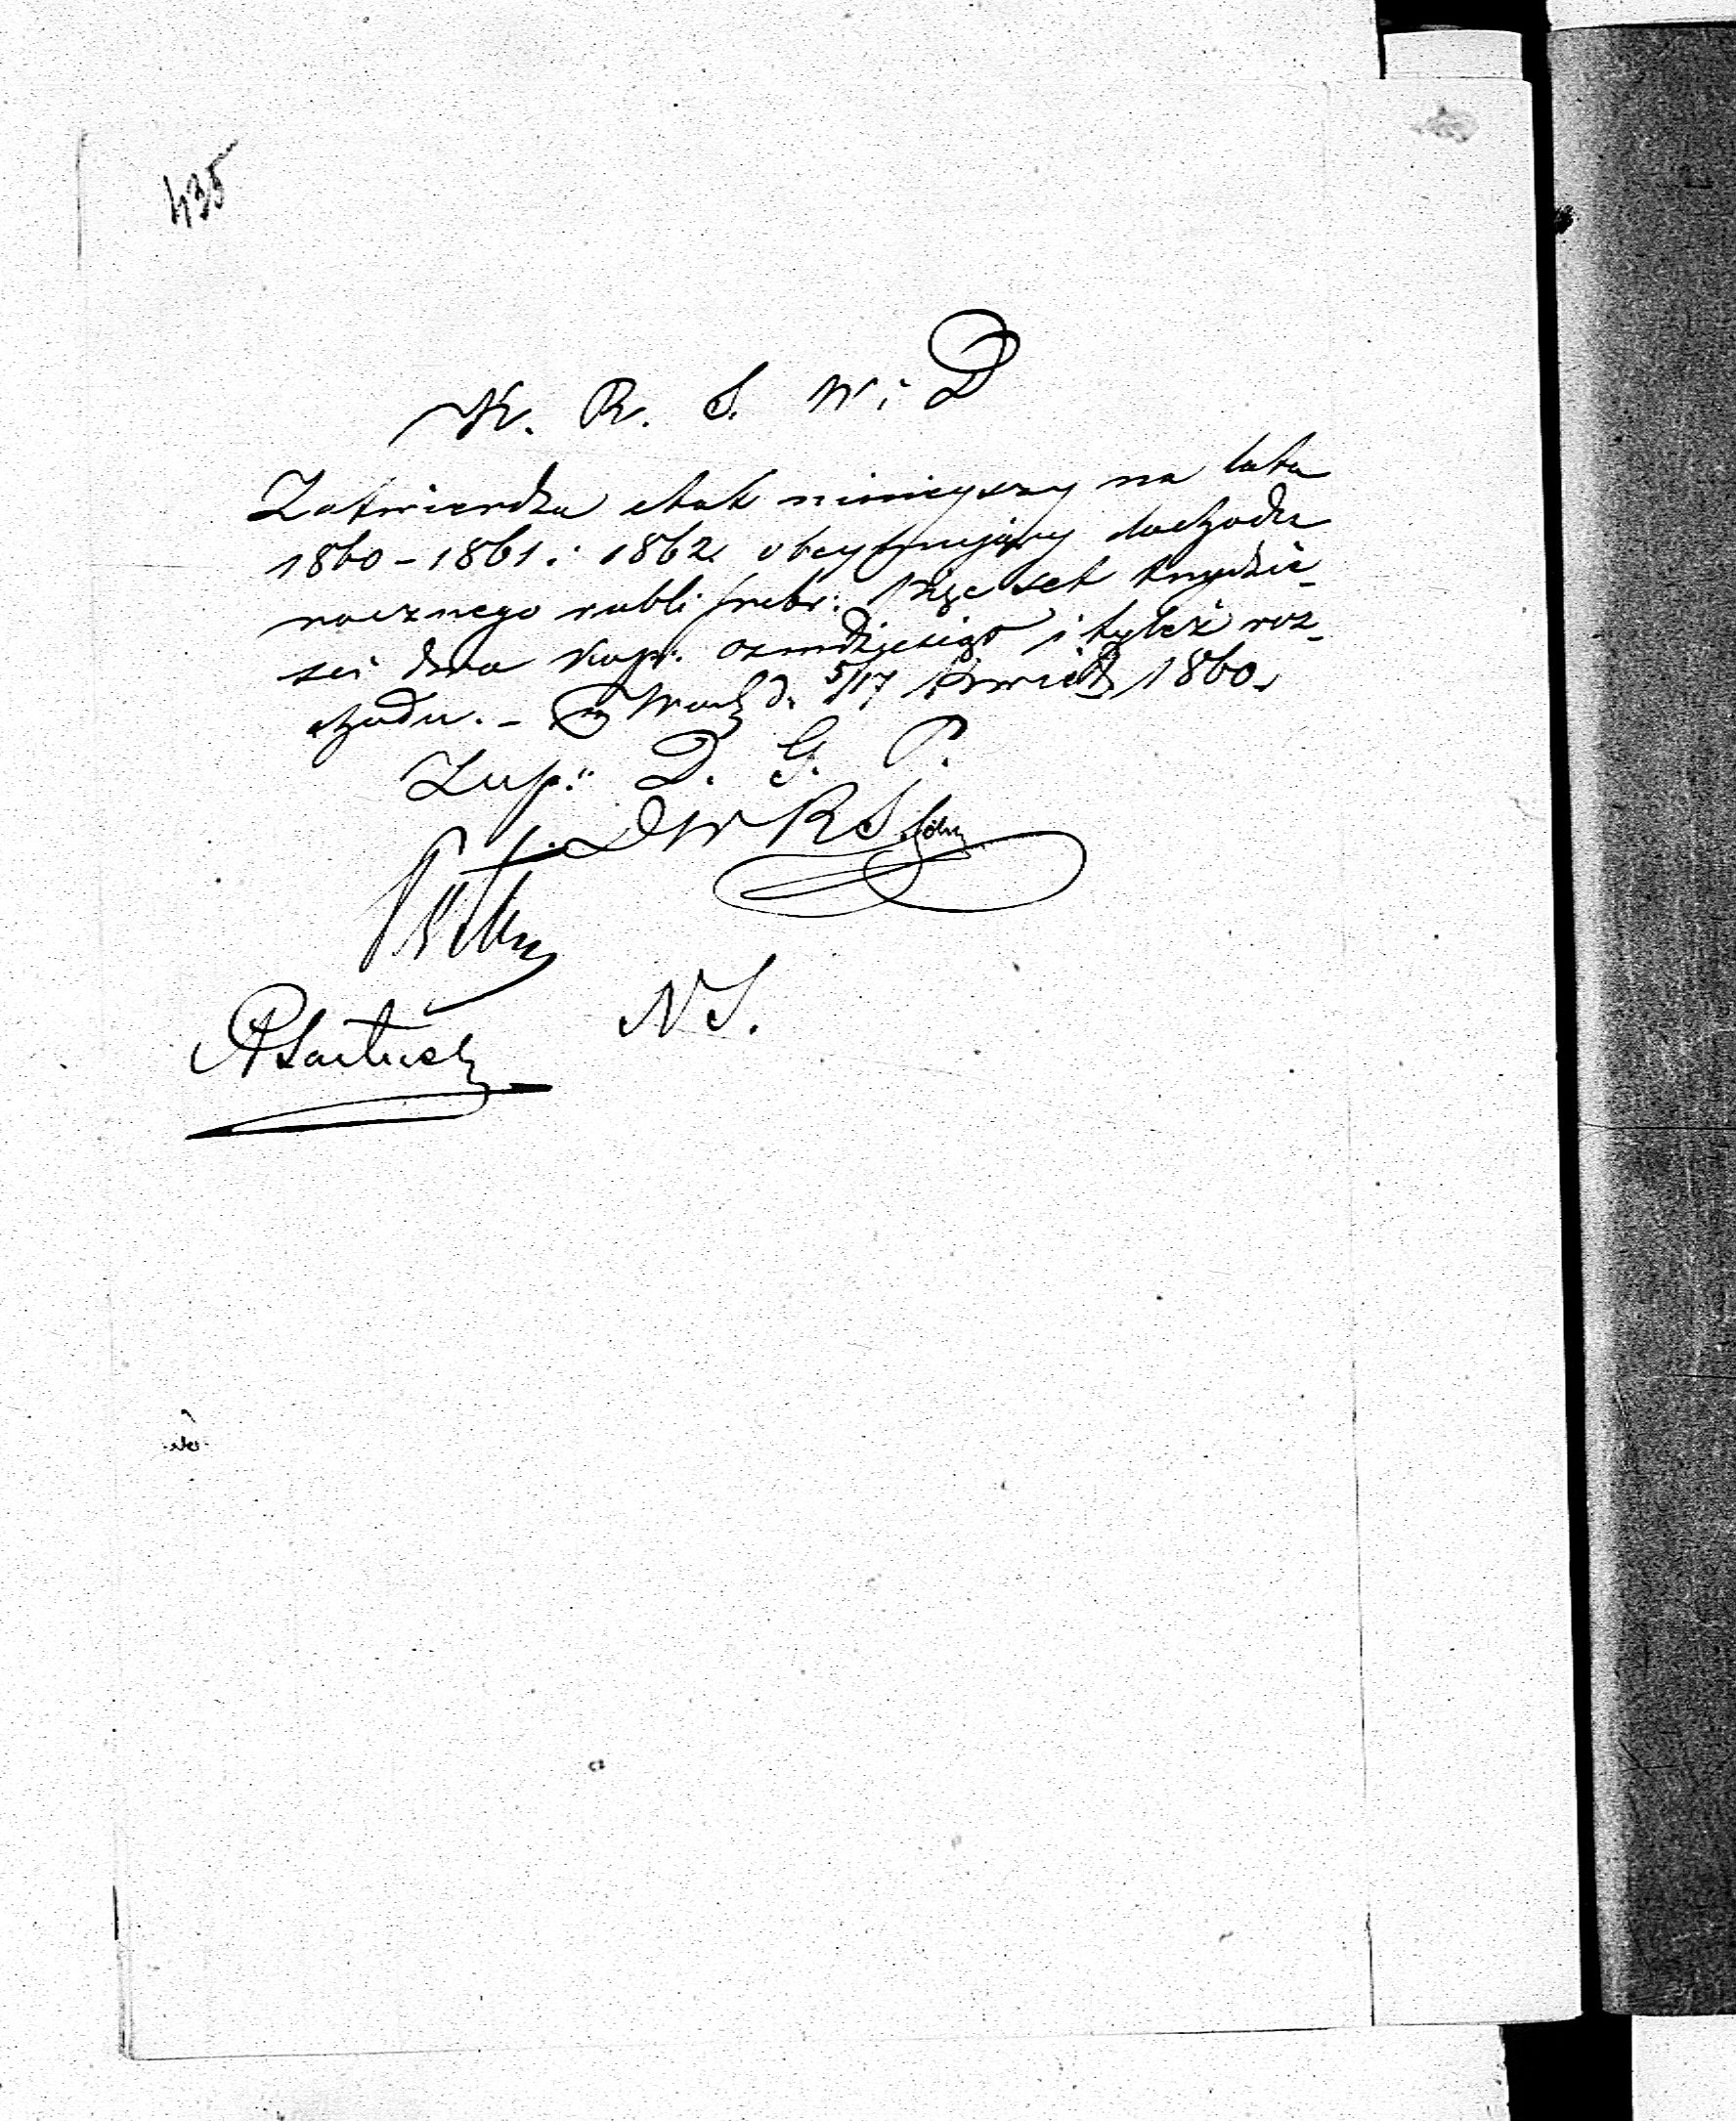 435
K. R. S. W. i D
Zatwierdza etat niniejszy na lata
1860 – 1861 i 1862 obejmujący dochodu
rocznego rubli srebr: pięćset trzydzie-
ści dwa kop. ośmdziesiąt i tyleż roz-
chodu. – w Warsz d. 5/17 Kwiet 1860.
Zup: D. G. P.
D W R S
N S.